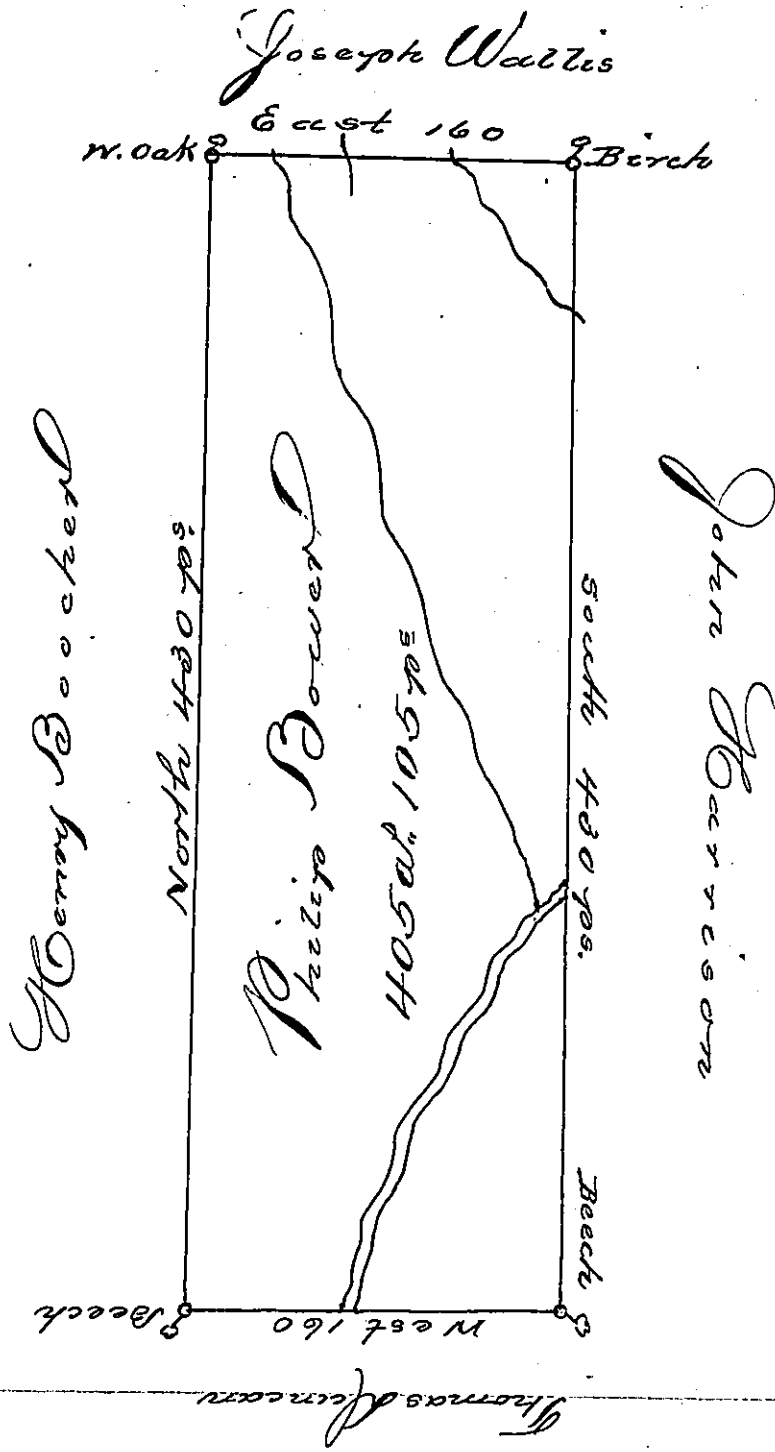 Joseph Wallis
East 160
W. Oak
Birch
Henry Boocher
North 430 ps.
Philip Bower
405 a. 105 ps
South 430 ps.
John Harrison
Beech
Beech
West 160
Thomas Duncan